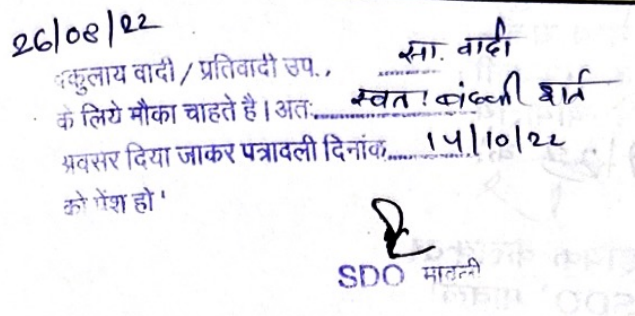 26/08/22
वकुलाय वादी / प्रतिवादी उप., सा. वादी
के लिये मौका चाहते है। अतः स्वतः बंदली शर्त
अवसर दिया जाकर पत्रावली दिनांक 14/10/22
को पेंश हो'
SDO मावली